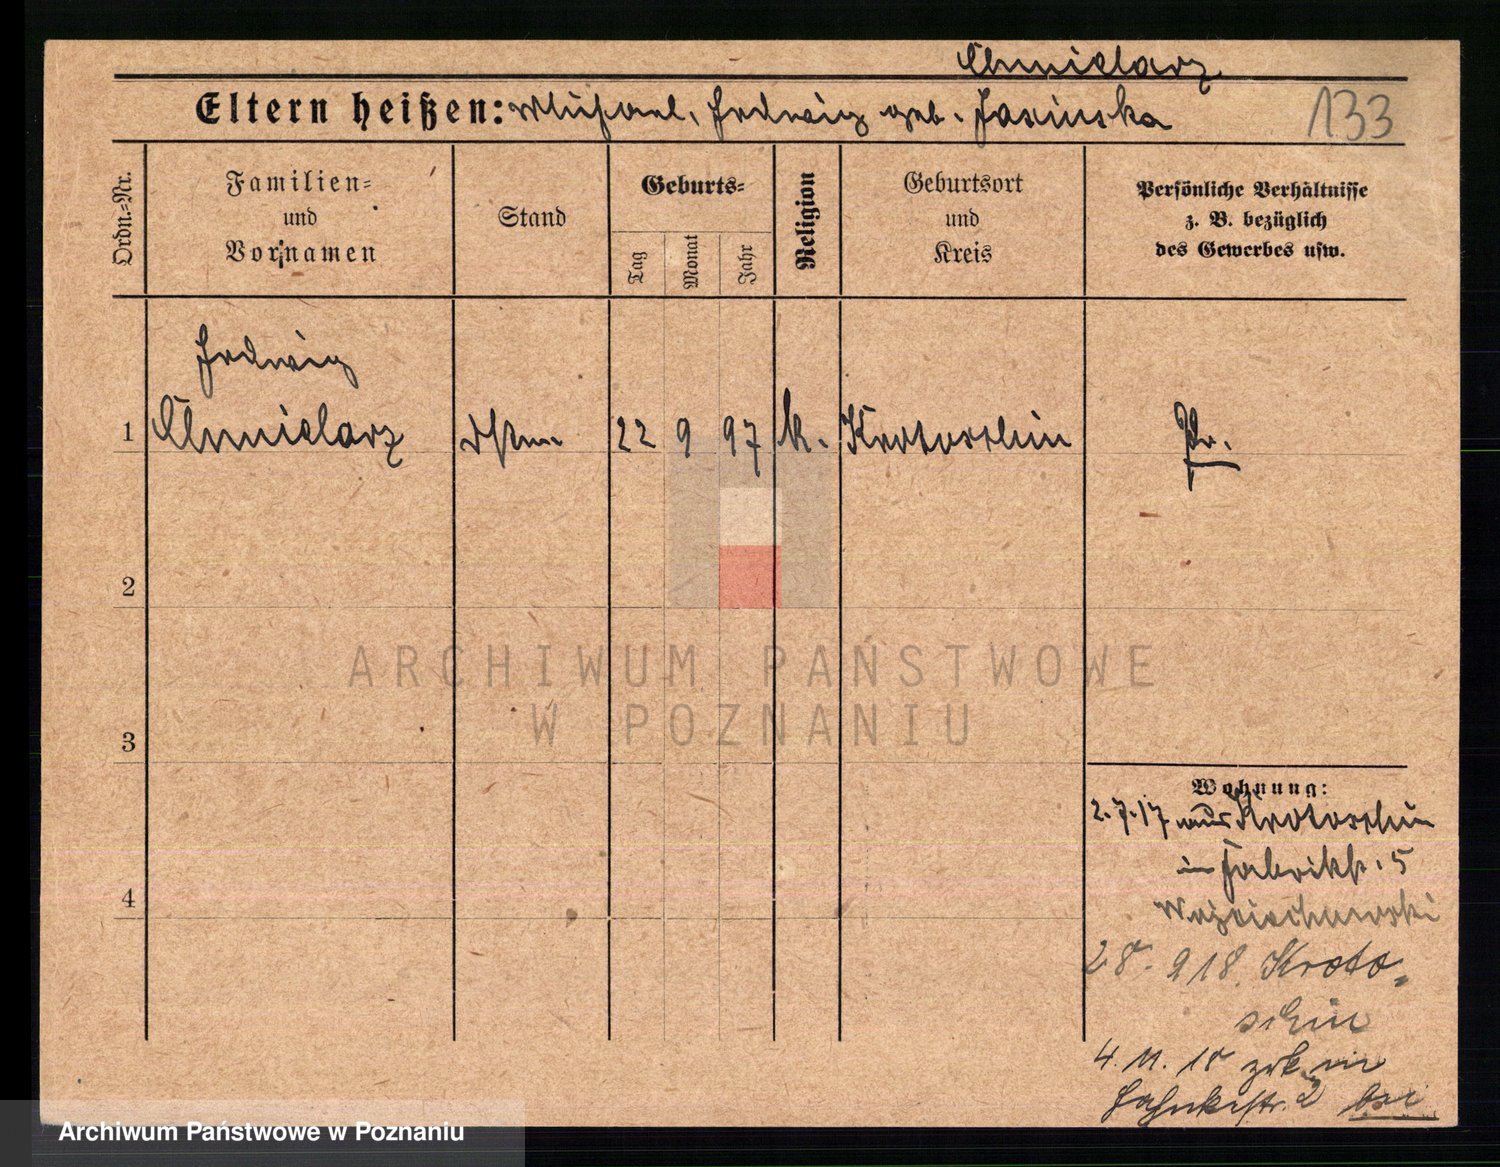 Chmielarz
Eltern heißen: Michael, Hedwig geb. Jasinska
133
Ordn.-Nr.
Familien- und Vornamen
Stand
Geburts-
Tag
Monat
Jahr
Religion
Geburtsort und Kreis
Persönliche Verhältnisse
z. B. bezüglich
des Gewerbes usw.
Hedwig
1 Chmielarz 22 9 97 k. Krotoschin Pr.
2
3
4
Wohnung:
2.7.17 aus Krotoschin
in Fabrikstr. 5
Wojciechowski
28. 9 18. Kroto-
schin
4. 11. 18 zrk. in
2 bei
ARCHIWUM PAŃSTWOWE
W POZNANIU
Archiwum Państwowe w Poznaniu